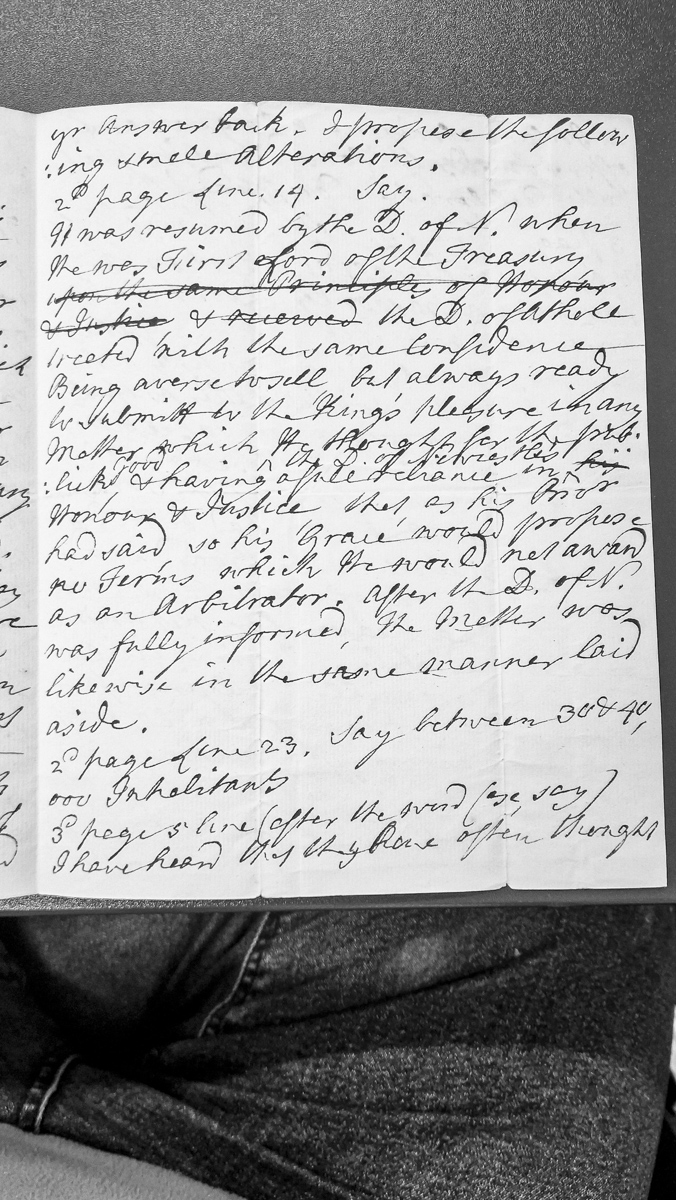 yr Answer back. I propose the follow
:ing smele Alterations.
2d page Line. 14. Say.
It was resumed by the D. of N. when
He was First Lord of the Treasury
upon the same Principles of Honour
& Justice & received the D. of Athole
treated with the same Confidence
Being averse to sell but always ready
to submitt to the King's pleasure in any
Matter which He thought for the pub:
:lick good & having a full reliance in the D. of Newcastles his
Honour & Justice that as his Prior
had said so his Grace would propose
no Terms which He would not award
as an Arbitrator. After the D. of N.
was fully informed, the Matter was
likewise in the same manner laid
aside.
2d page Line 23. Say between 30 & 40,
000 Inhabitants
3d page 5 line (after the word Case, say)
I have heard that they have often thought